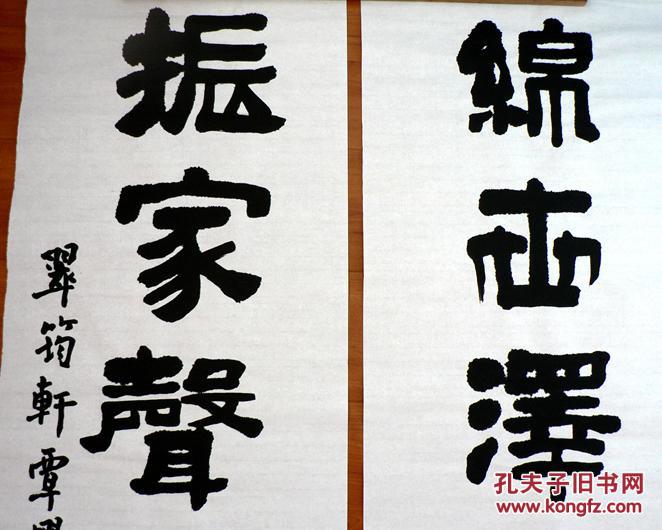 綿世澤
振家聲
翠筠軒覃
孔夫子旧书网
www.kongfz.com